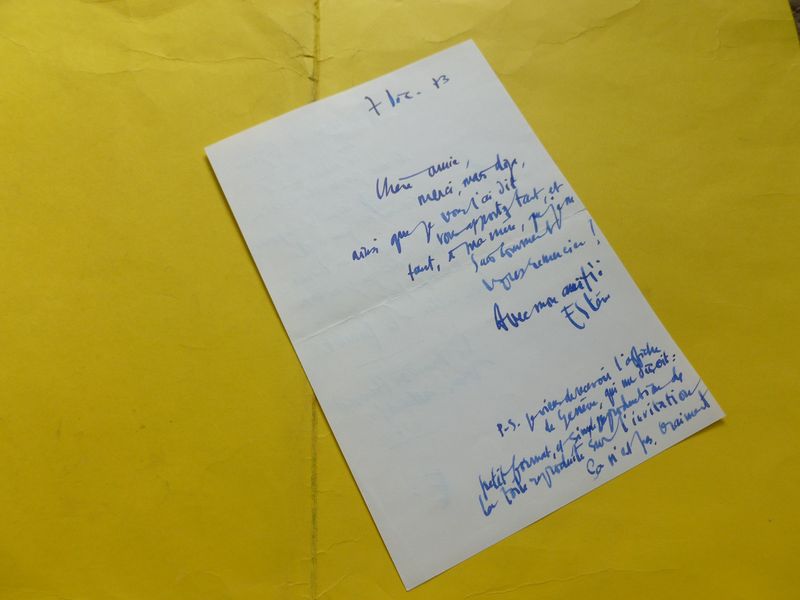 7 Déc. 83
Chère amie,
merci, mais déjà,
ainsi que je vous l'ai dit
vous apportez tant, et
tant, à ma mère, que je ne
sais comment
vous remercier !
Avec mon amitié
P.S. je viens de recevoir l'affiche
de Genève, qui me déçoit :
petit format, et simple reproduction de
la toile reproduite sur l'invitation
Ça n'est pas vraiment